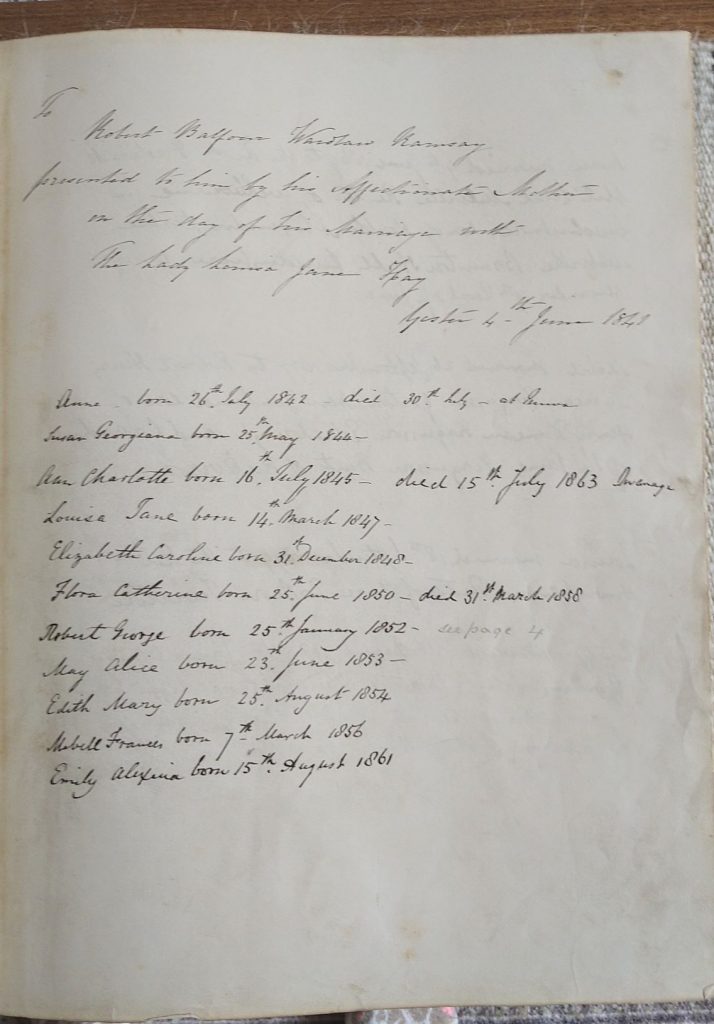 To
Robert Balfour Wardlaw Ramsay
presented to him by his Affectionate Mother
on the day of his Marriage with
The Lady Louisa Jane Hay
Yester 4th June 1841
Anne born 26th July 1842 - died 30th July - at
Susan Georgiana born 25th May 1844 -
Ann Charlotte born 16th July 1845 - died 15th July 1863
Louisa Jane born 14th March 1847 -
Elizabeth Caroline born 31st December 1848 -
Flora Catherine born 25th June 1850 - died 31st March 1858
Robert George born 25th January 1852 - see page 4
May Alice born 23rd June 1853 -
Edith Mary born 25th August 1854
Mabell Frances born 7th March 1856
Emily Alexina born 15th August 1861